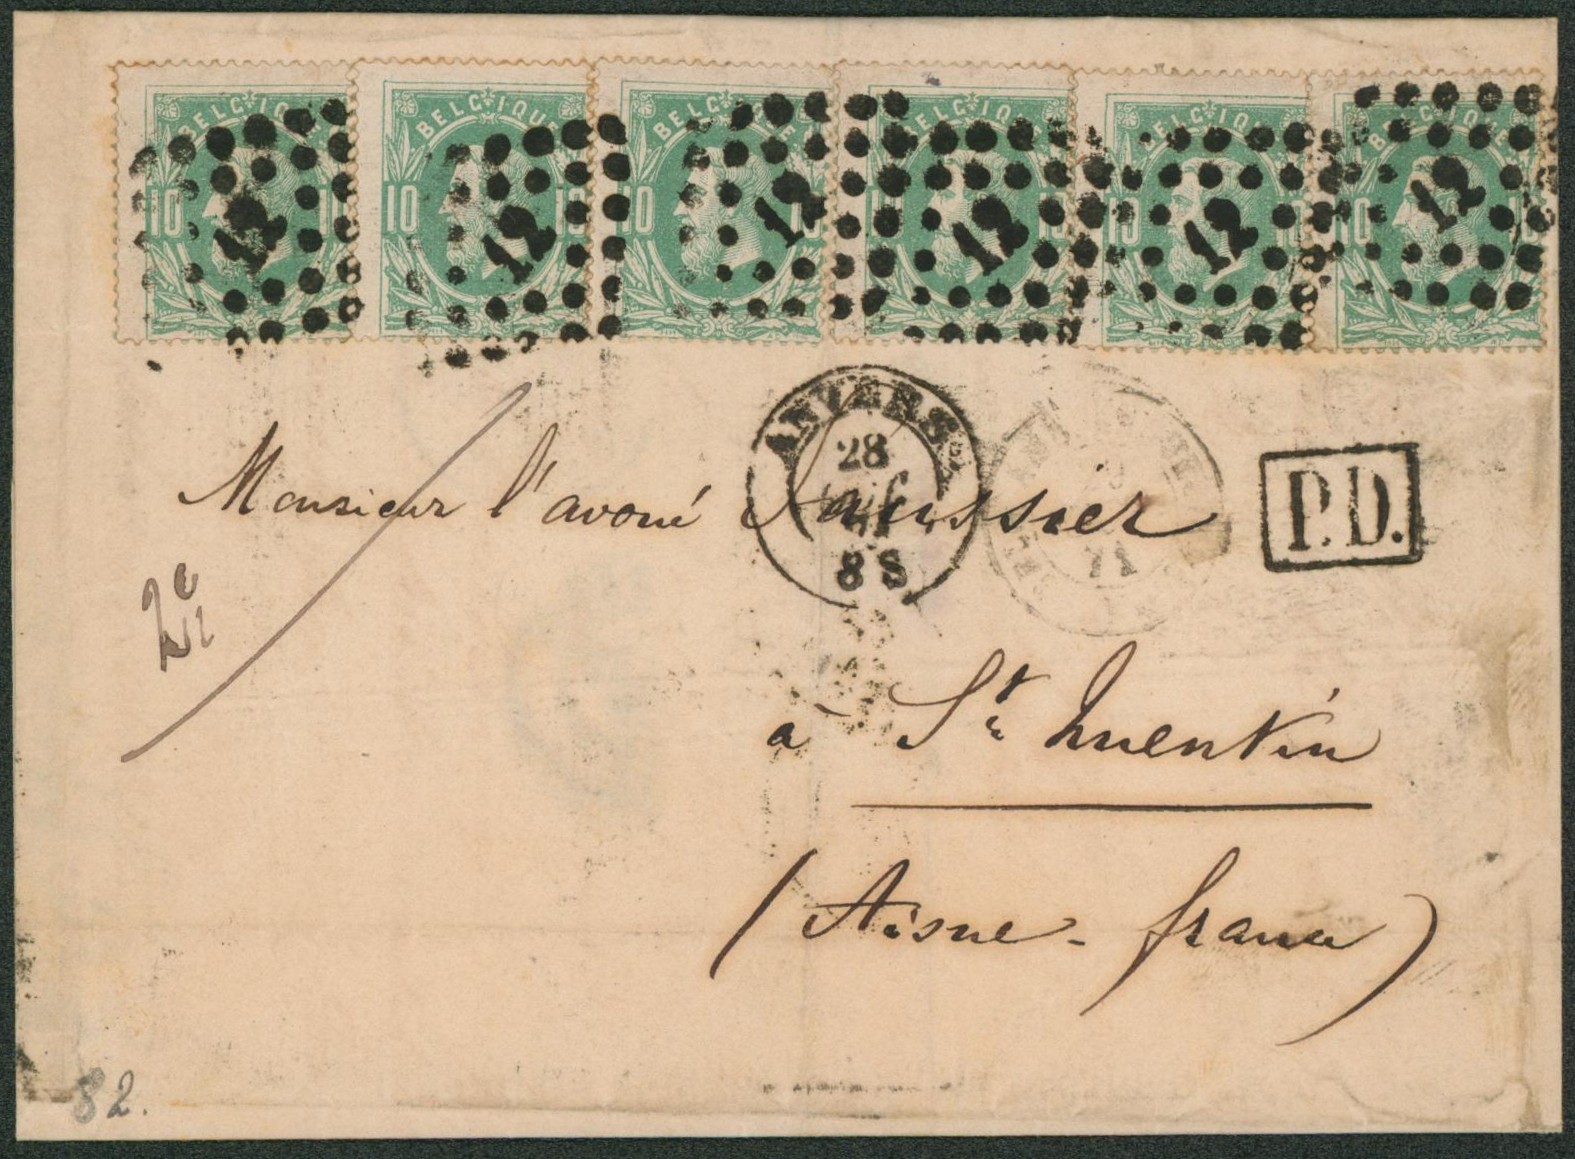 BELGIQUE BELGIQUE BELGIQUE BELGIQUE BELGIQUE BELGIQUE
10 10 10 10 10 10
12 12 12 12 12 12
ANVERS
28
8 S
71
P.D.
Monsieur l'avoué
2e
à St Quentin
(Aisne - france)
82.